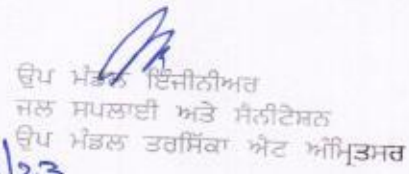 ਉਪ ਮੰਡਲ ਇੰਜੀਨੀਅਰ
ਜਲ ਸਪਲਾਈ ਅਤੇ ਸੈਨੀਟੇਸ਼ਨ
ਉਪ ਮੰਡਲ ਤਰਸਿੱਕਾ ਐਟ ਅੰਮ੍ਰਿਤਸਰ